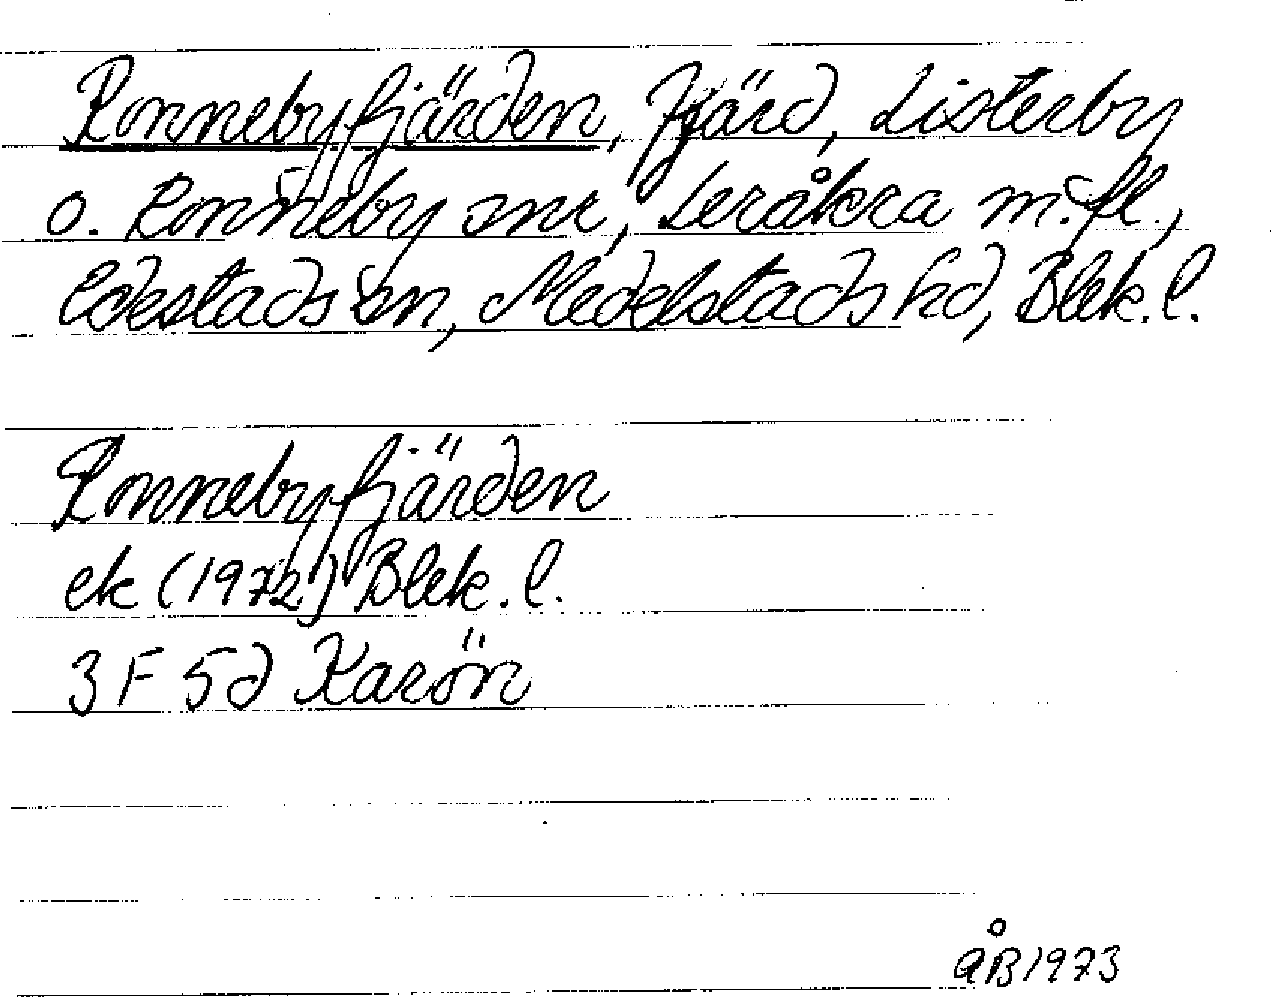 Ronnebyfjärden, Fjärd, Listerby
o. Ronneby snr, Leråkra m.fl.,
Edestads sn, Medelstads hd, Blek. l.
Ronnebyfjärden
ek (1972) Blek. l.
3 F 5d Karön
åB 1973